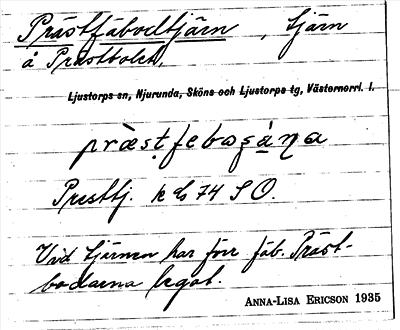 Prästfäbodtjärn, tjärn
å Prästbolet,
Ljustorps sn, Njurunda, Sköns och Ljustorps tg, Västernorrl. l.
Presttj. k ds 74 S O.
Vid tjärnen har förr fäb. Präst-
bodarna legat.
ANNA-LISA ERICSON 1935